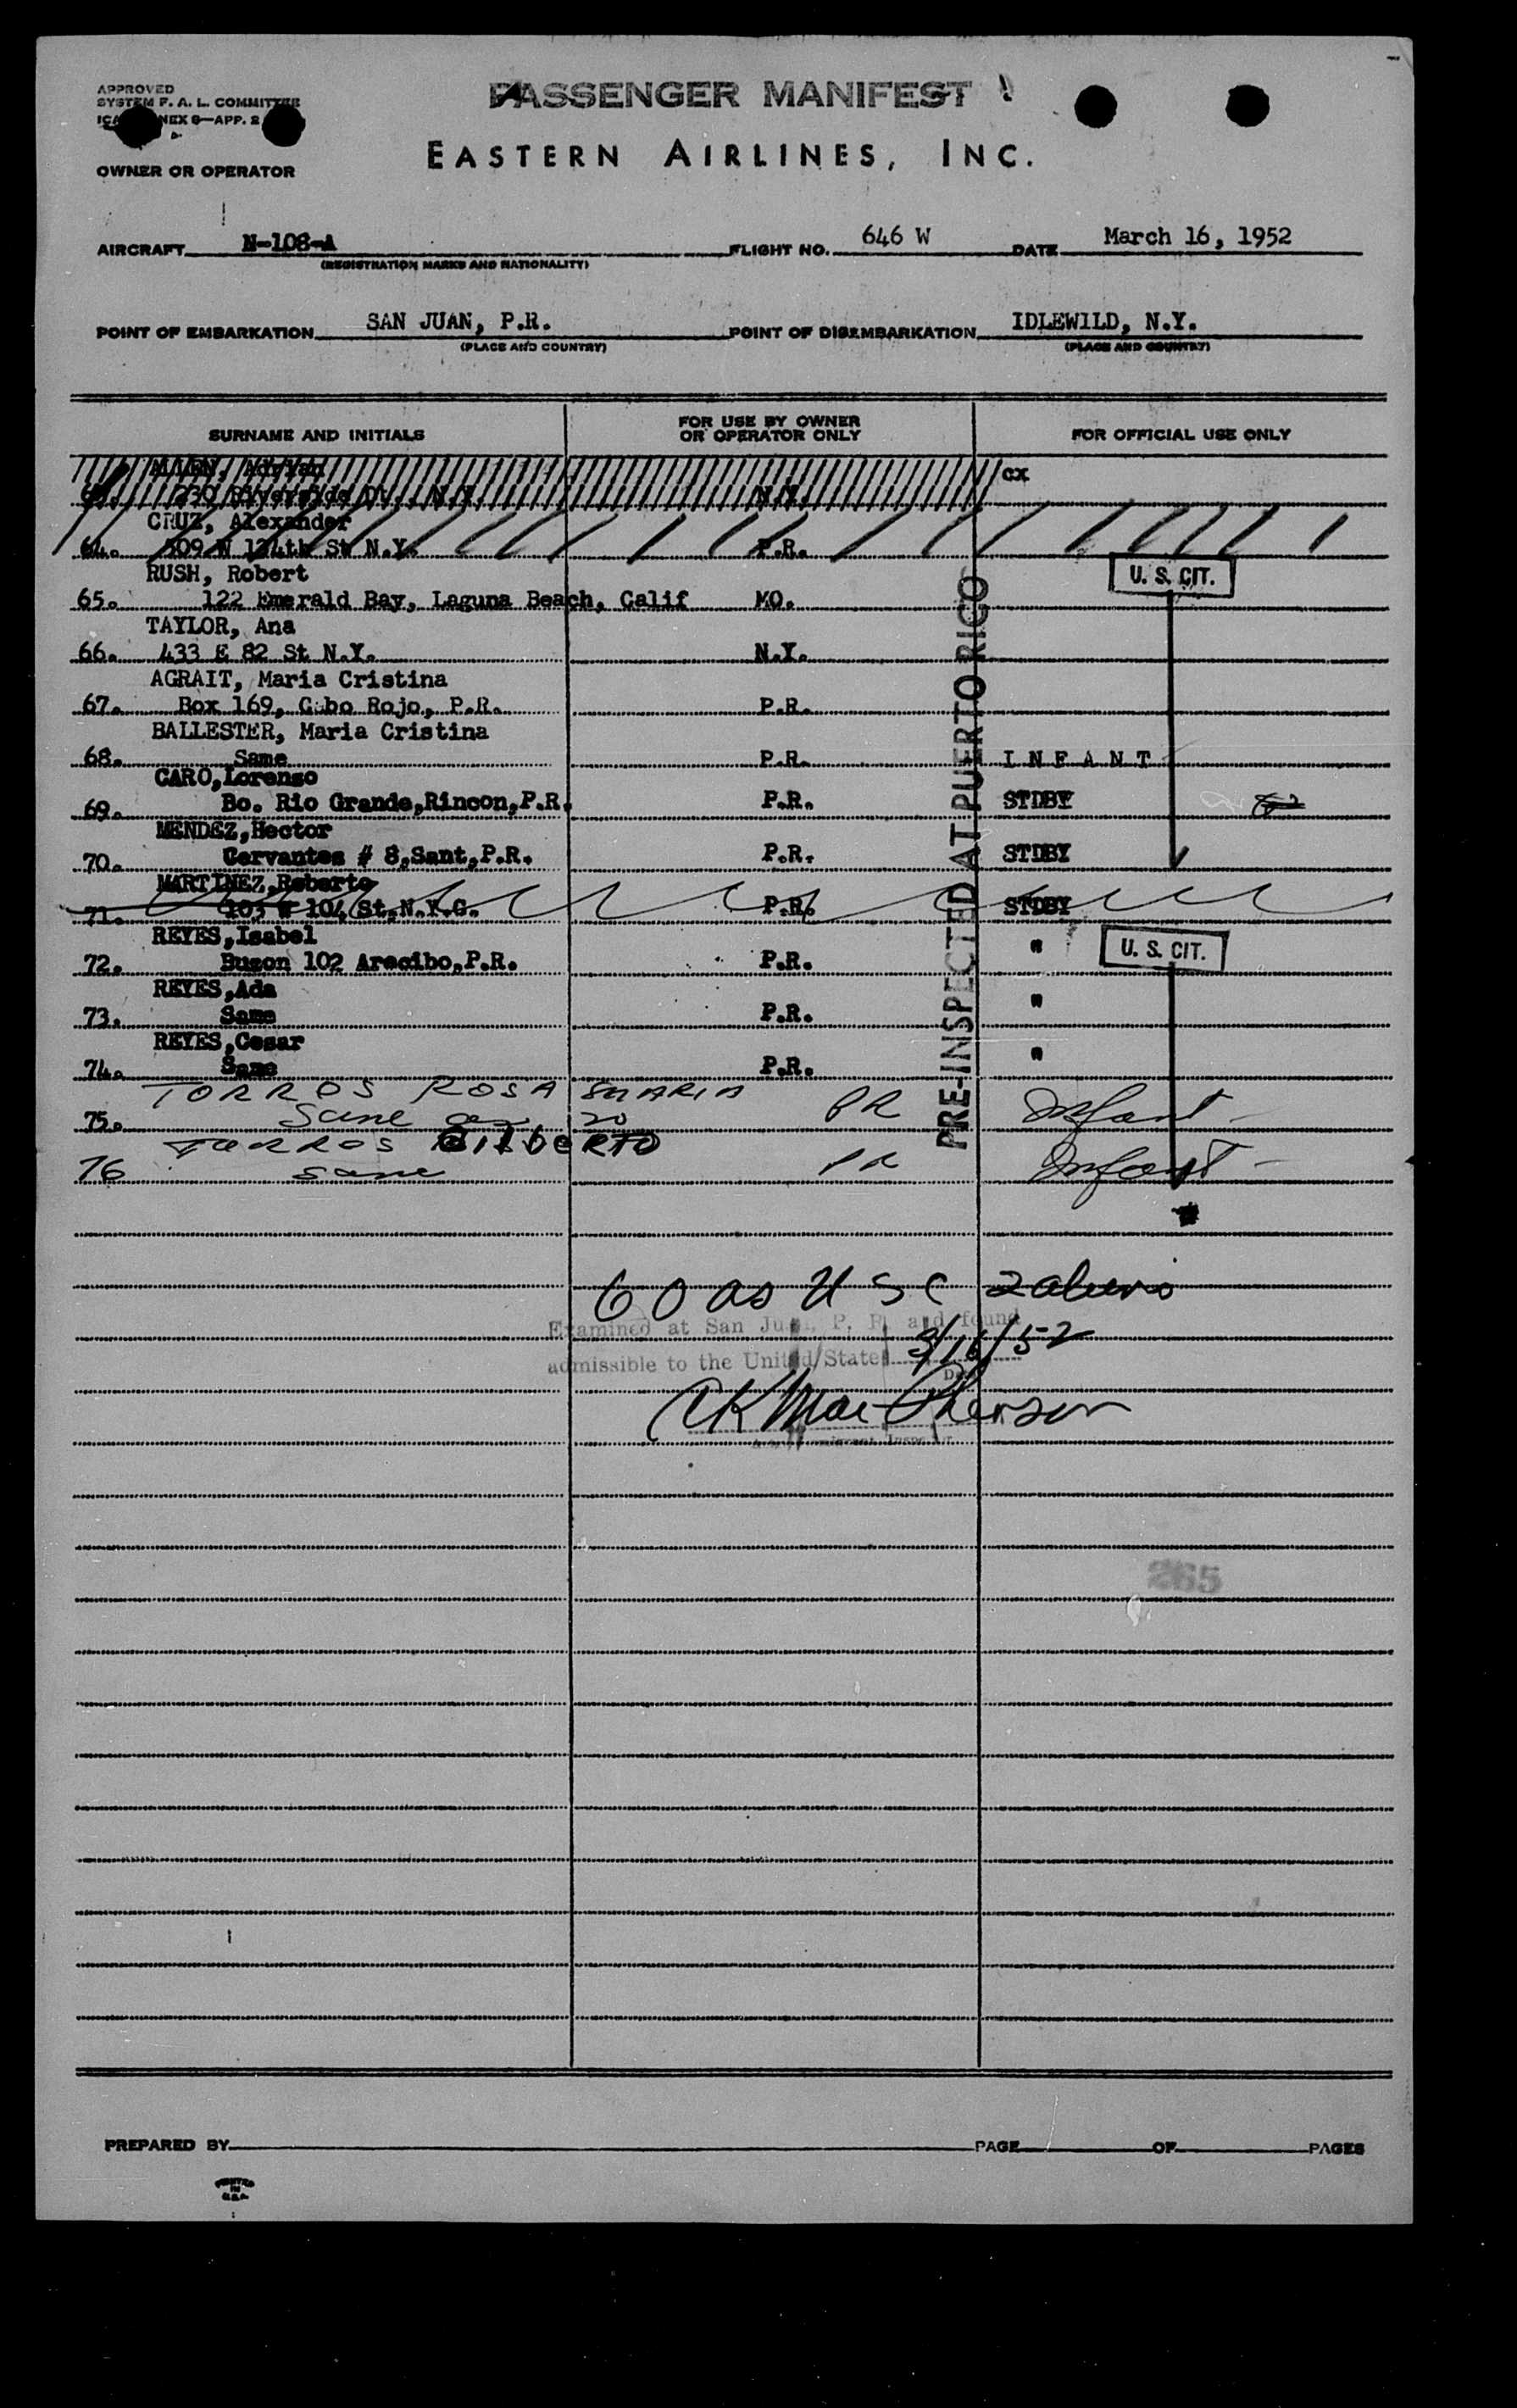 APPROVED
SYSTEM F. A. L. COMMITTEE
NEX 9—APP. 2
PASSENGER MANIFEST
EASTERN AIRLINES, INC.
OWNER OR OPERATOR
AIRCRAFT N-108-A FLIGHT NO. 646 W DATE March 16, 1952
(REGISTRATION MARKS AND NATIONALITY)
POINT OF EMBARKATION SAN JUAN, P.R. POINT OF DISEMBARKATION IDLEWILD, N.Y.
(PLACE AND COUNTRY) (PLACE AND COUNTRY)
SURNAME AND INITIALS FOR USE BY OWNER OR OPERATOR ONLY FOR OFFICIAL USE ONLY
ALLEN, Adryan cx
230 Riverside N.Y. N.Y.
CRUZ, Alexander
64. 509 W 134th St N.Y. P.R.
RUSH, Robert U. S. CIT.
65. 122 Emerald Bay, Laguna Beach, Calif MO.
TAYLOR, Ana
66. 433 E 82 St N.Y. N.Y.
AGRAIT, Maria Cristina
67. Box 169, Cabo Rojo, P.R. P.R.
BALLESTER, Maria Cristina
68. Same P.R. I N F A N T
CARO,Lorenso
69. Bo. Rio Grande,Rincon,P.R. P.R. STDBY
MENDEZ,Hector
70. Cervantes # 8,Sant,P.R. P.R. STDBY
MARTINEZ,Roberto
71. 103 W 104 St,N.Y.C. P.R. STDBY
REYES,Isabel
72. Buzon 102 Arecibo,P.R. P.R. " U. S. CIT.
REYES,Ada
73. Same P.R. "
REYES,Cesar
74. Same P.R. "
TORROS ROSA MARIA
75. Same as 20 PR Infant
TORROS GilbeRTO
76 same PR Infant
PRE-INSPECTED AT PUERTO RICO
60 as U S C 2 aliens
Examined at San Juan, P. R. and found
admissible to the United States 3/16/52
CK MacPherson
265
PREPARED BY PAGE OF PAGES
PRINTED
IN
U.S.A.